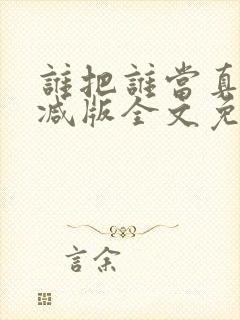 誰把誰當真
减版全文免
言余